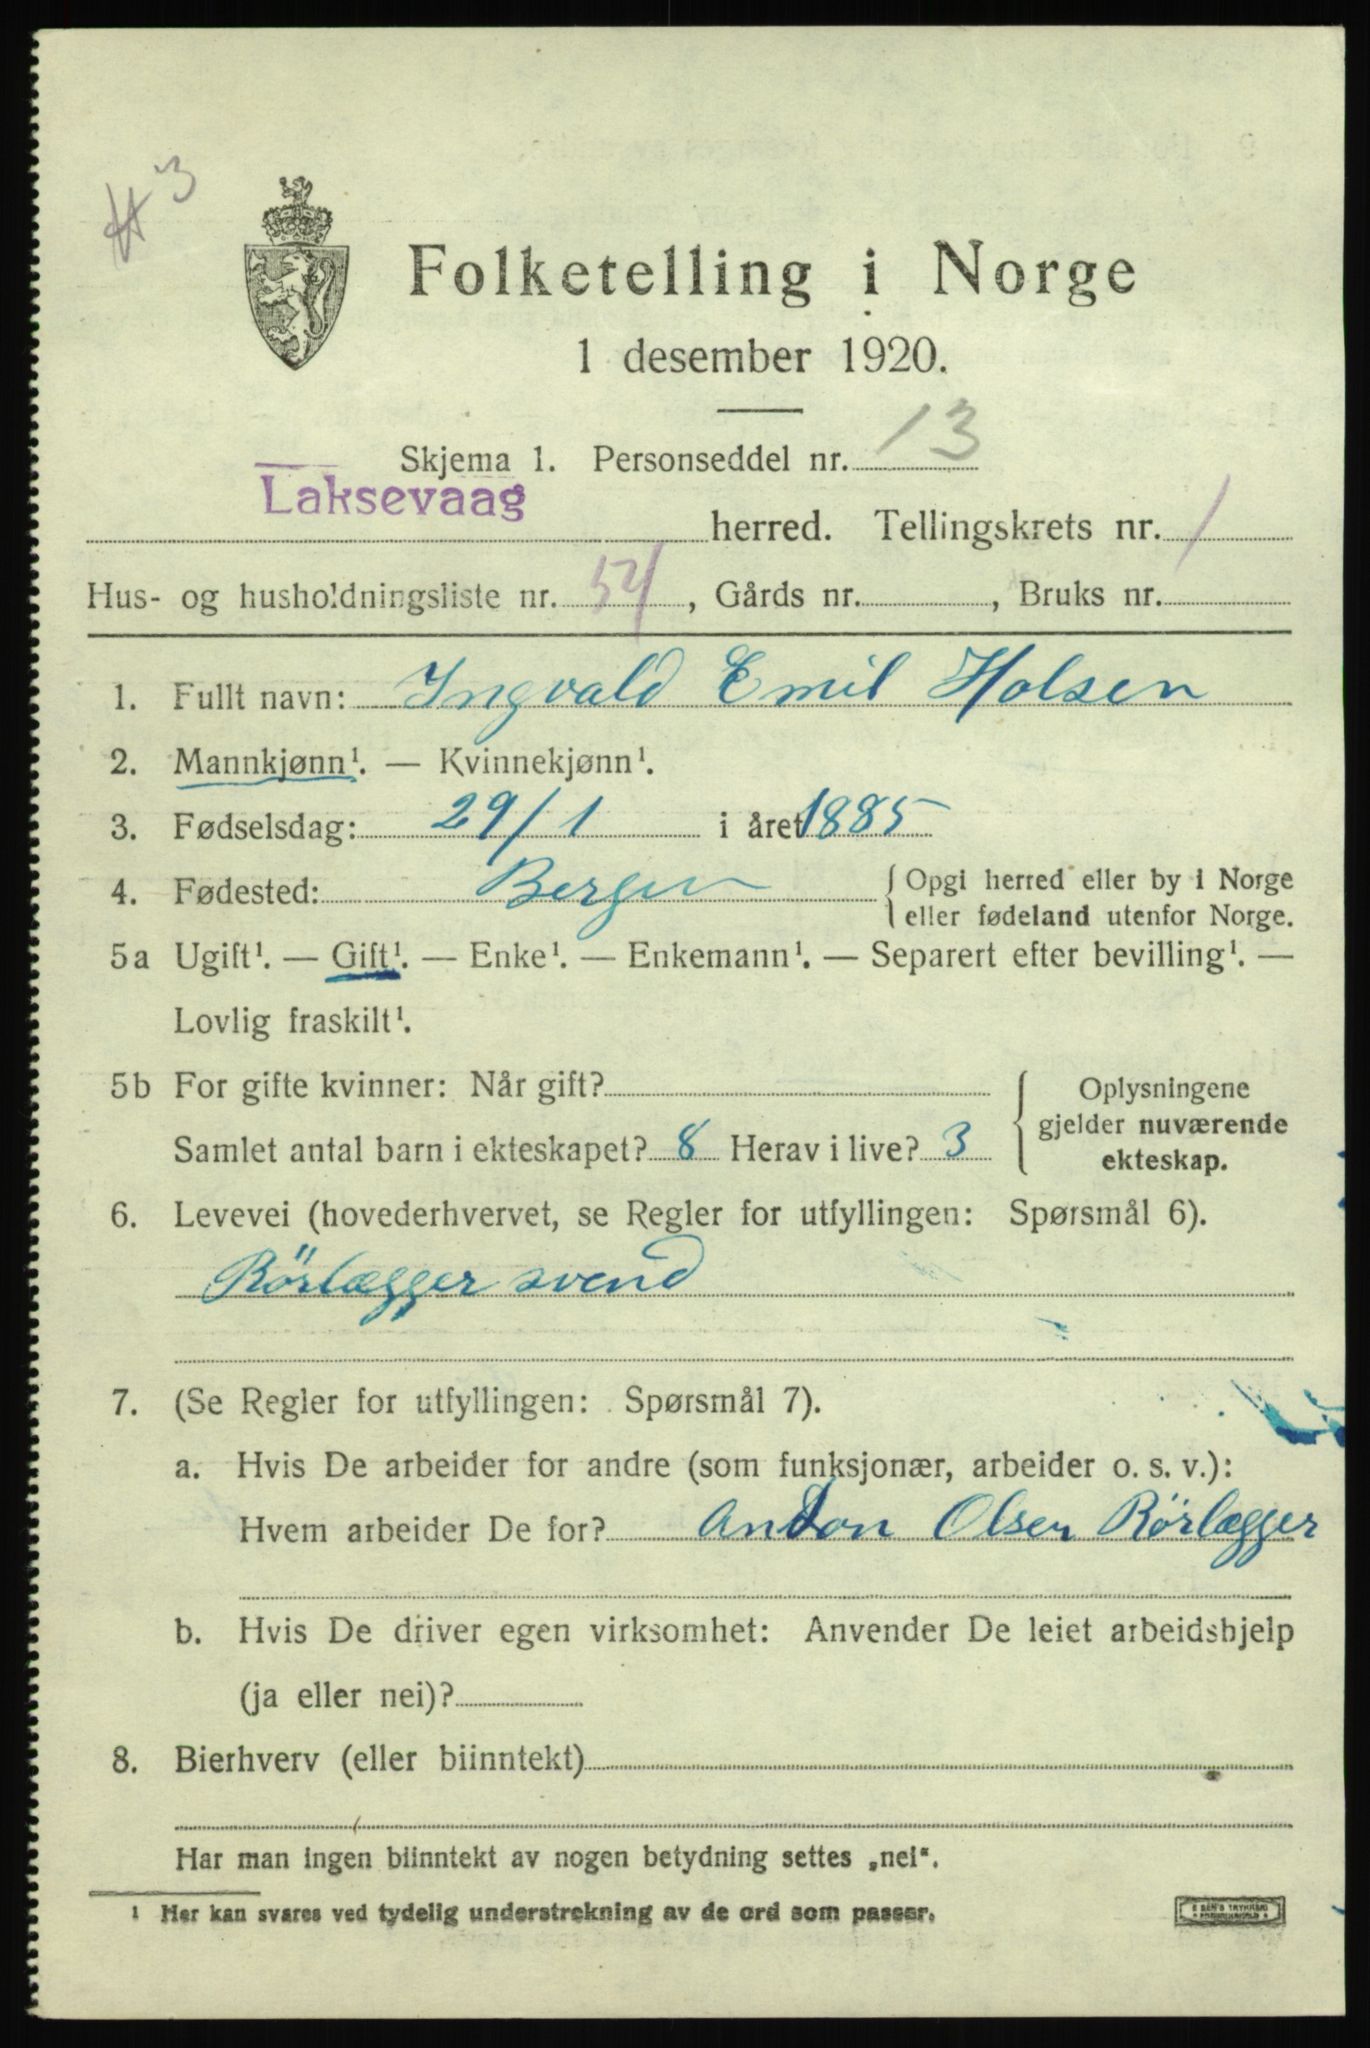 # 3
Folketelling i Norge
1 desember 1920.
Skjema 1. Personseddel nr. 13
Laksevaag herred. Tellingskrets nr. 1
Hus- og husholdningsliste nr. 54, Gårds nr. , Bruks nr.
1. Fullt navn: Ingvald Emil Holsen
2. Mannkjønn¹. — Kvinnekjønn¹.
3. Fødselsdag: 29/1 i året 1885
4. Fødested: Bergen { Opgi herred eller by i Norge
eller fødeland utenfor Norge.
5a Ugift¹. — Gift¹. — Enke¹. — Enkemann¹. — Separert efter bevilling¹. —
Lovlig fraskilt¹.
5b For gifte kvinner: Når gift? { Oplysningene
gjelder nuværende
Samlet antal barn i ekteskapet? 8 Herav i live? 3
ekteskap.
6. Levevei (hovederhvervet, se Regler for utfyllingen: Spørsmål 6).
Rörlægger svend
7. (Se Regler for utfyllingen: Spørsmål 7).
a. Hvis De arbeider for andre (som funksjonær, arbeider o. s. v.):
Hvem arbeider De for? Anton Olsen Rörlægger
b. Hvis De driver egen virksomhet: Anvender De leiet arbeidshjelp
(ja eller nei)?
8. Bierhverv (eller biinntekt)
Har man ingen biinntekt av nogen betydning settes „nei“.
¹ Her kan svares ved tydelig understrekning av de ord som passer.